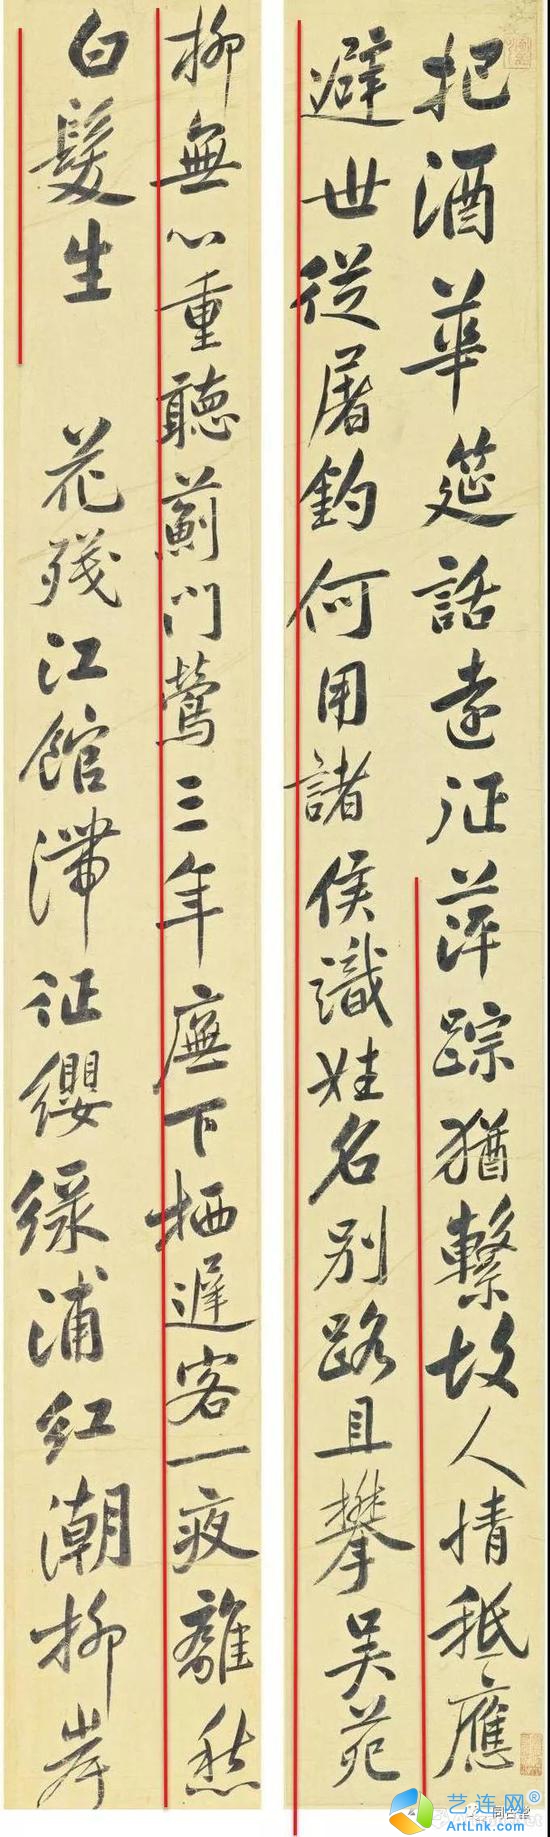 把酒華筵話遠征萍踪猶繫故人情秪應
避世從屠釣何用諸侯識姓名別路且攀吴苑
柳無心重聽薊門鶯三年廡下栖遲客一夜離愁
白髮生 花殘江館滞征纓緑浦红潮柳岸
艺连网®
ArtLnk.com